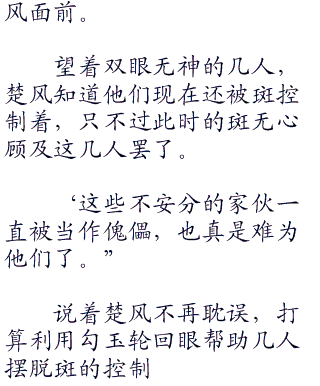 风面前。
望着双眼无神的几人，
楚风知道他们现在还被斑控
制着，只不过此时的斑无心
顾及这几人罢了。
‘这些不安分的家伙一
直被当作傀儡，也真是难为
他们了。”
说着楚风不再耽误，打
算利用勾玉轮回眼帮助几人
摆脱斑的控制